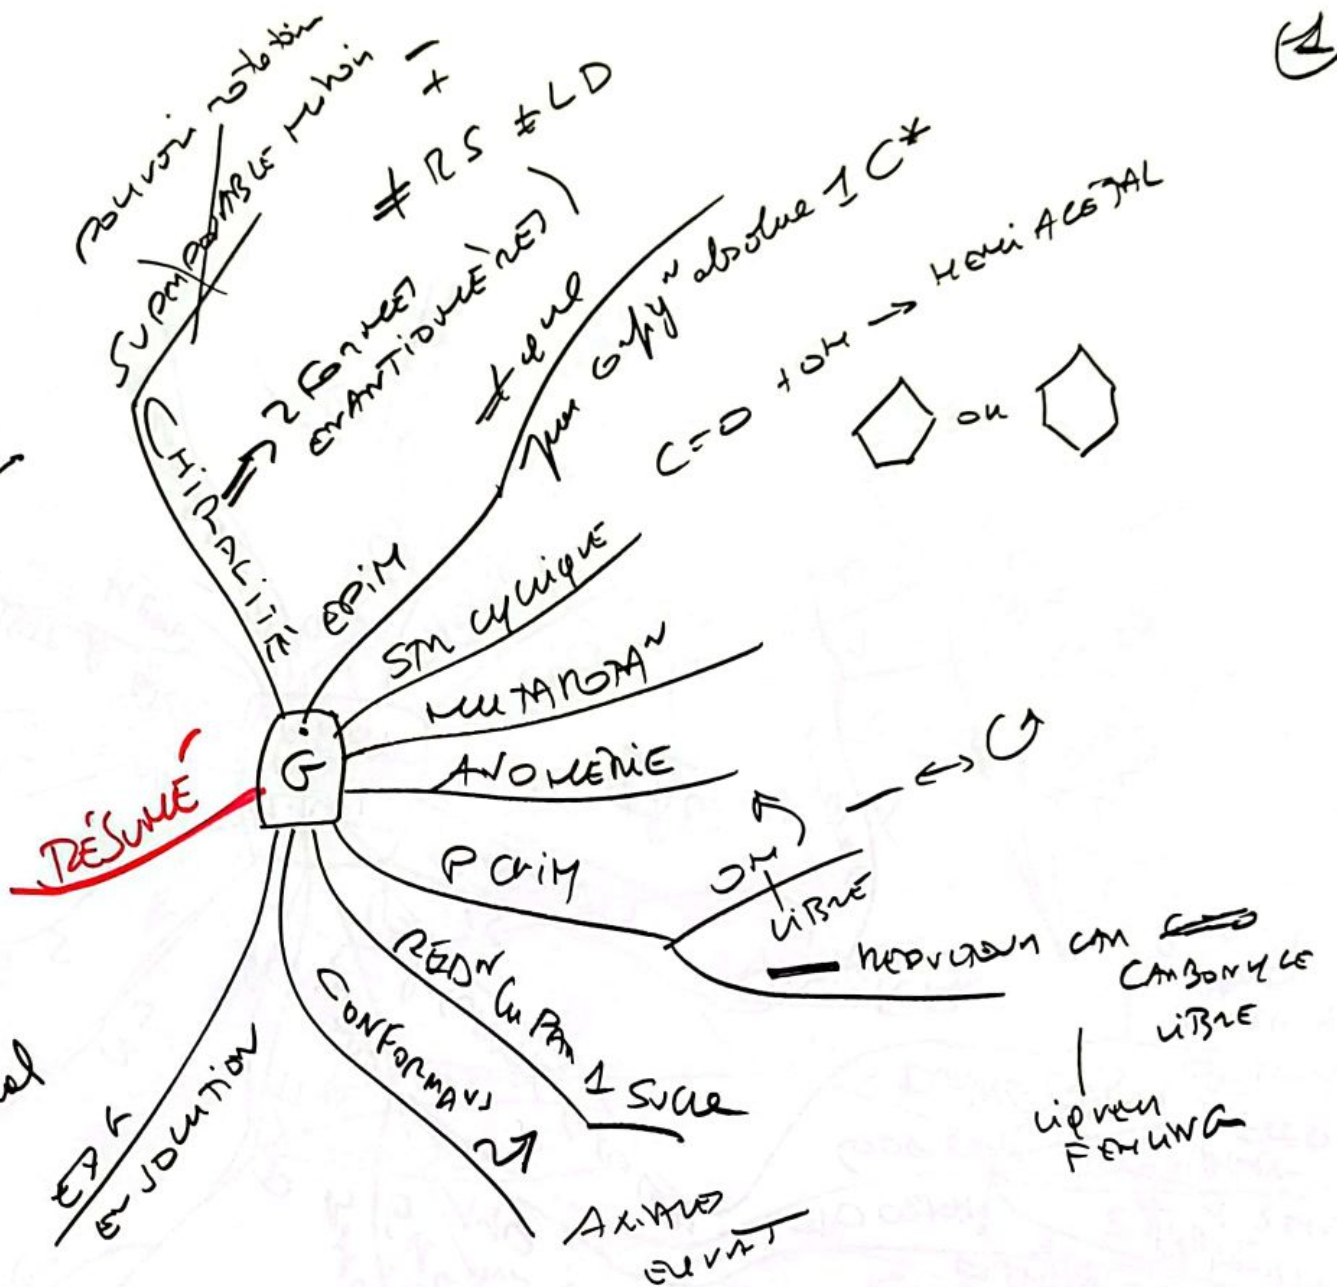 1
pouvoir rotatoire
SUPERPOSABLE miroir
- +
≠ RS ≠ LD
CHIRALITÉ
⇒ 2 FORMES
ENANTIOMÈRES)
EPIM
≠ que
par config° absolue 1 C*
STR CYCLIQUE
C=O + OH → HEMI ACETAL
ou
MUTAROTA°
ANOMERIE
G
RÉSUMÉ
P CHIM
OH
LIBRE
REDUCTEUR CAR
CARBONYLE
LIBRE
LIQUEUR
FEHLING
RÉDN Cu PAR 1 SUCRE
CONFORMAT
AXIALES
EN SOLUTION